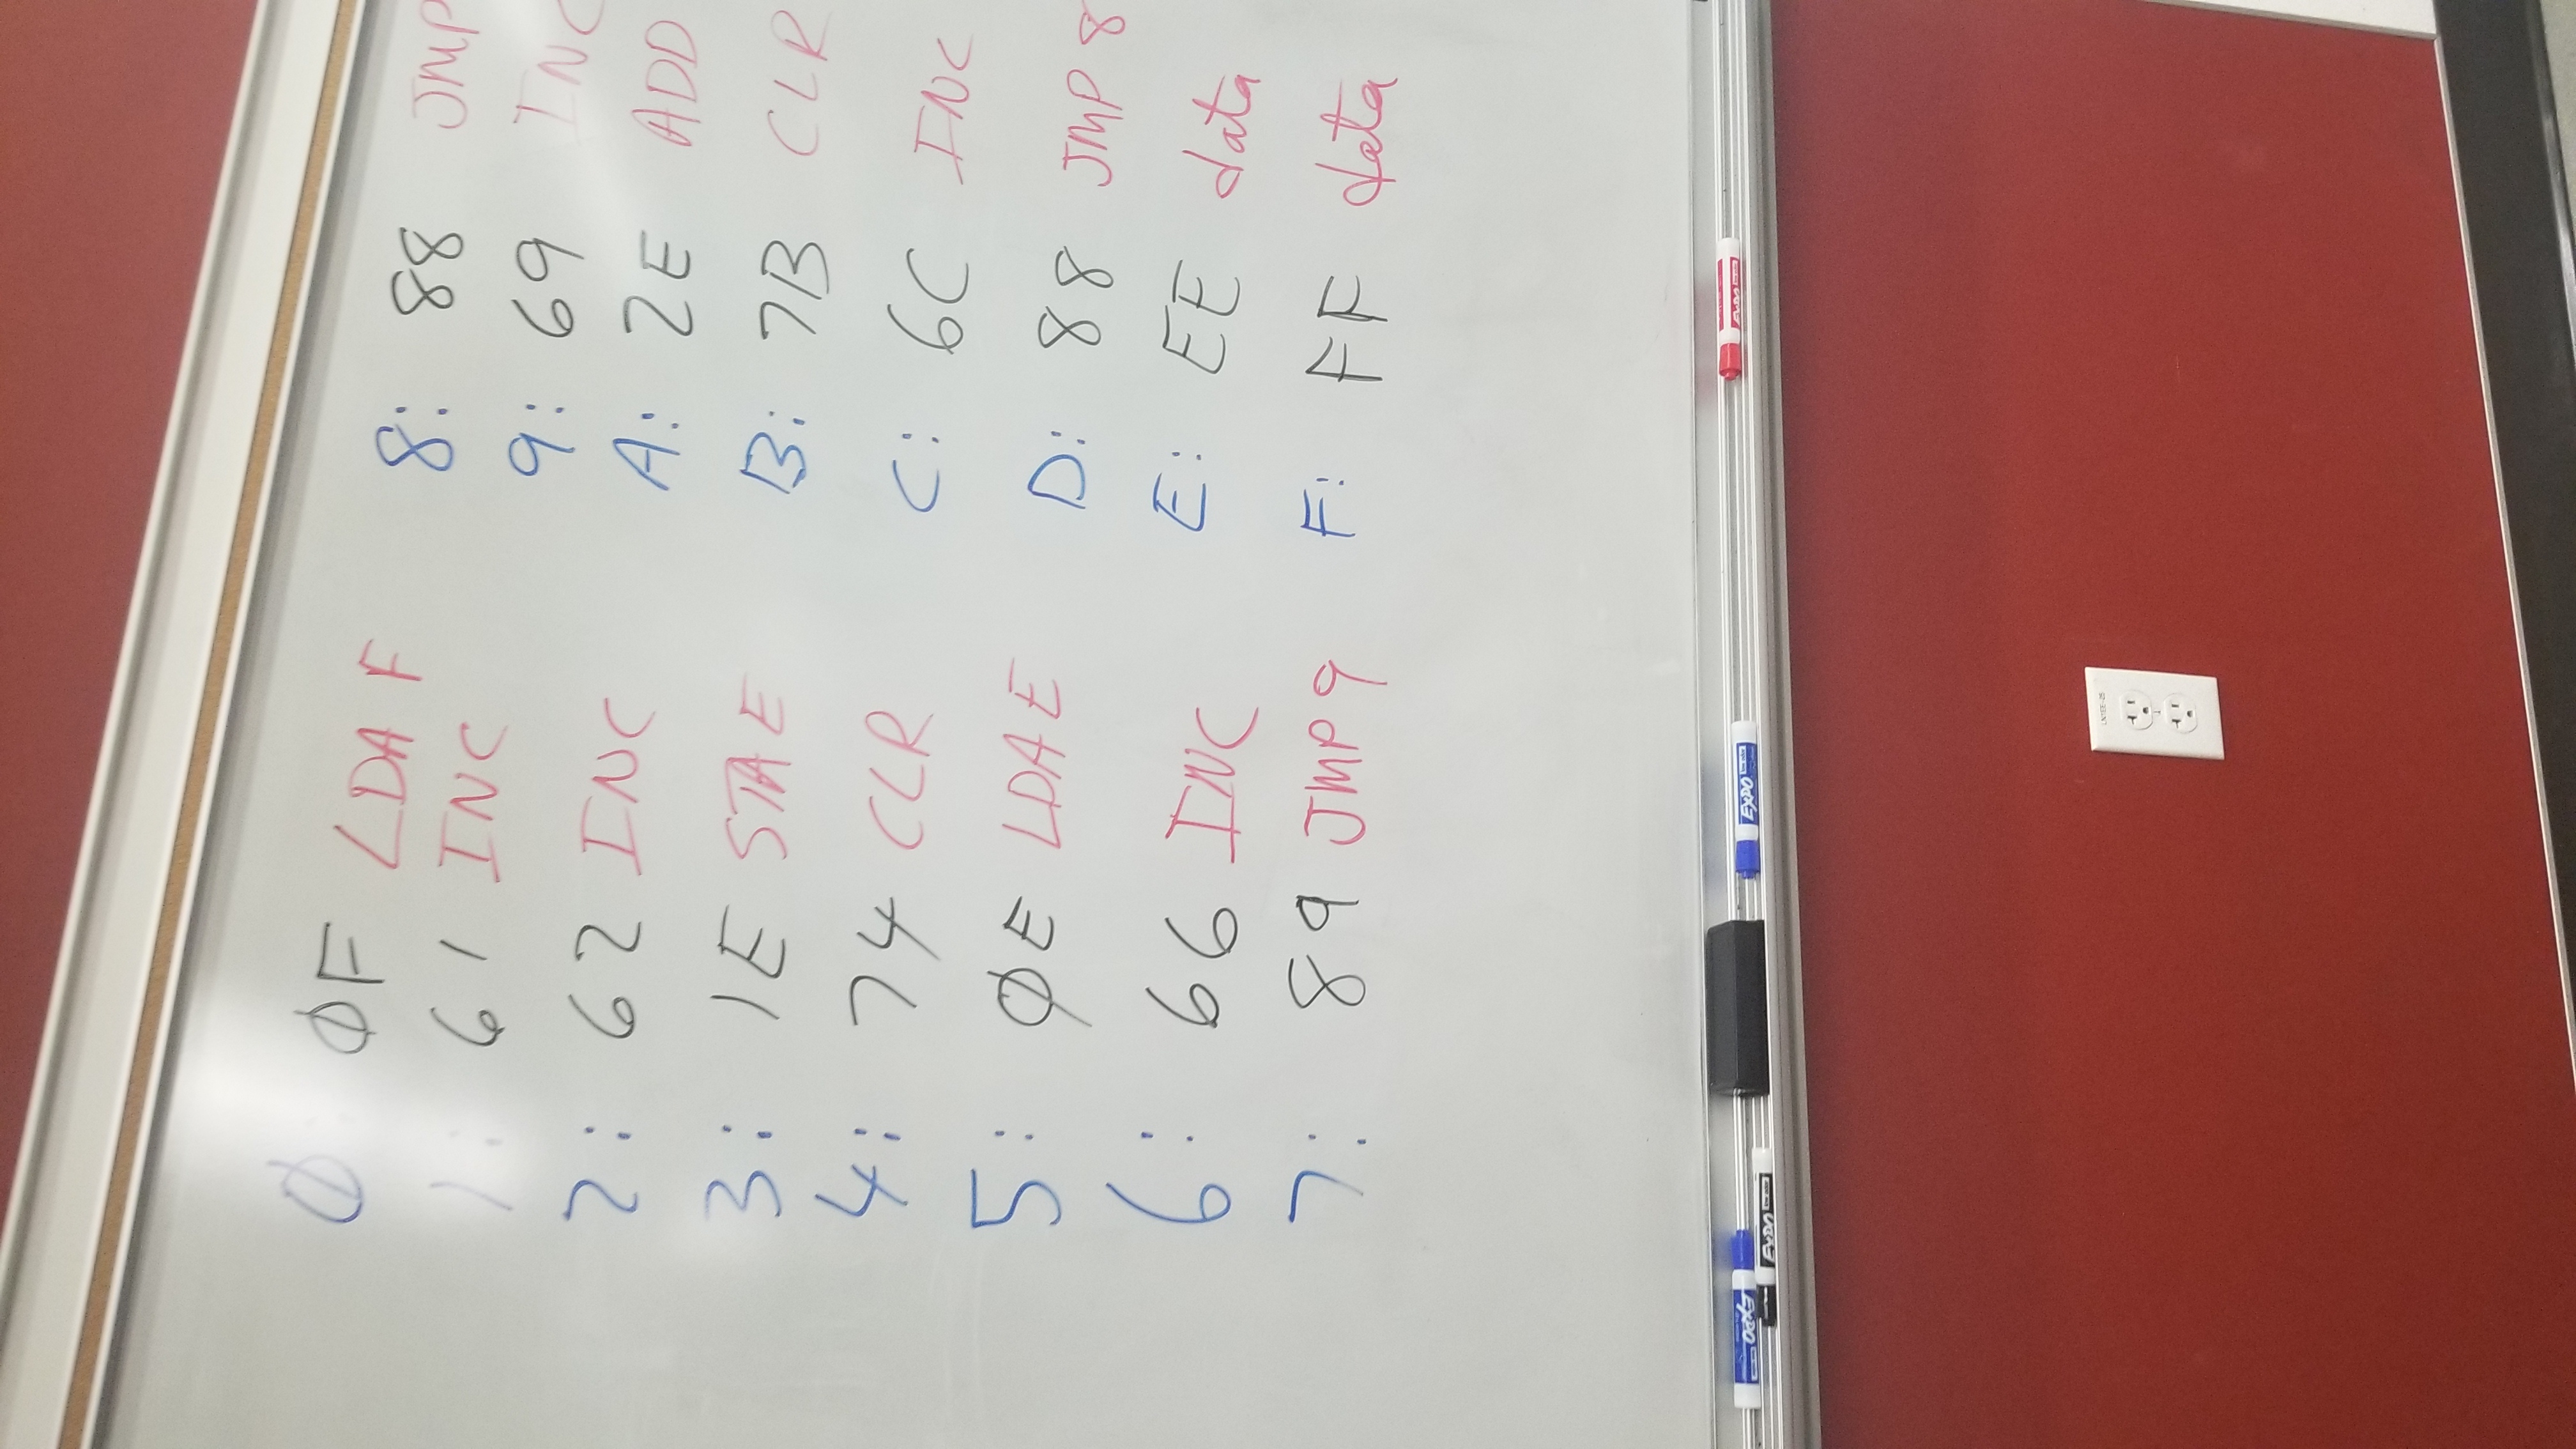 0 0F LDA F
1: 61 INC
2: 62 INC
3: 1E STA E
4: 74 CLR
5: 0E LDA E
6: 66 INC
7: 89 JMP 9
8: 88 JMP
9: 69 INC
A: 2E ADD
B: 7B CLR
C: 6C INC
D: 88 JMP 8
E: EE data
F: FF data
EXPO
EXPO
EXPO low odor
EXPO